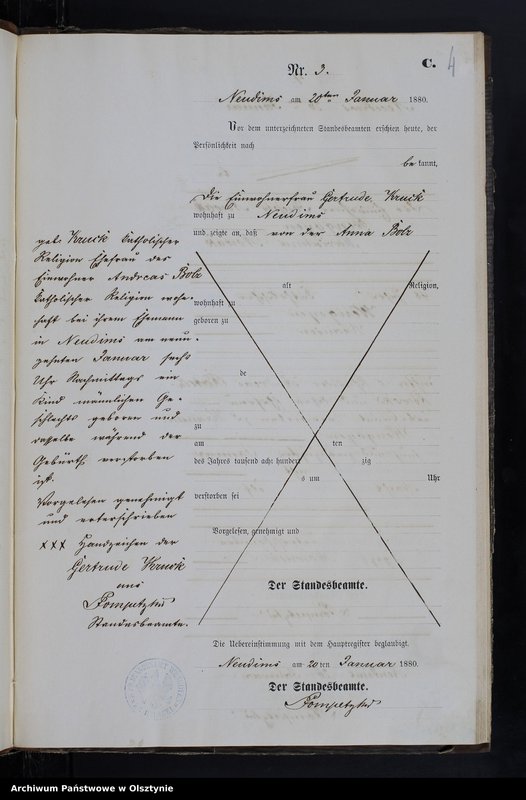 C.
4
Nr. 3.
Neudims am 20ten Januar 1880.
Vor dem unterzeichneten Standesbeamten erschien heute, der
Persönlichkeit nach
bekannt,
die Einwohnerfrau Gertrude Kruck
wohnhaft zu Neudims
und zeigte an, daß von der Anna Bolz
geb. Kruck katholischer
Religion Ehefrau des
Einwohner Andreas Bolz
katholischer Religion wohn-
haft bei ihrem Ehemann
in Neudims am neun-
zehnten Januar sechs
Uhr Nachmittags ein
Kind männlichen Ge-
schlechts geboren und
dasselbe während der
Geburth verstorben
ist.
Vorgelesen genehmigt
und unterschrieben
xxx Handzeichen der
Gertrude Kruck
aus
Standesbeamte.
alt Religion,
wohnhaft zu
geboren zu
de
zu
am ten
des Jahres tausend acht hundert zig
s um Uhr
verstorben sei
Vorgelesen, genehmigt und
Der Standesbeamte.
Die Uebereinstimmung mit dem Hauptregister beglaubigt.
Neudims am 20ten Januar 1880.
Der Standesbeamte.
Archiwum Państwowe w Olsztynie